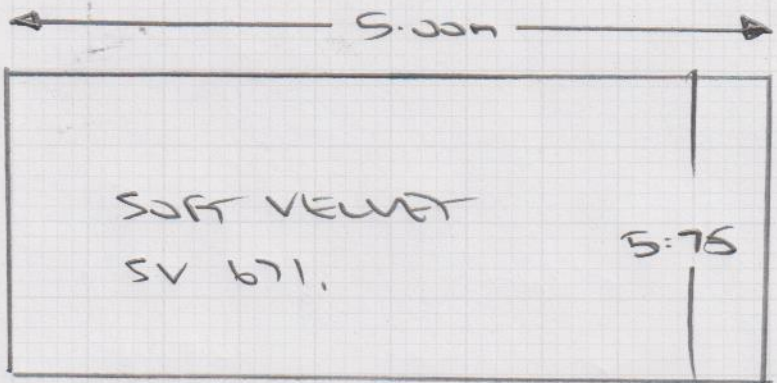 5.00m
SOFT VELVET
SV 671.
5.75